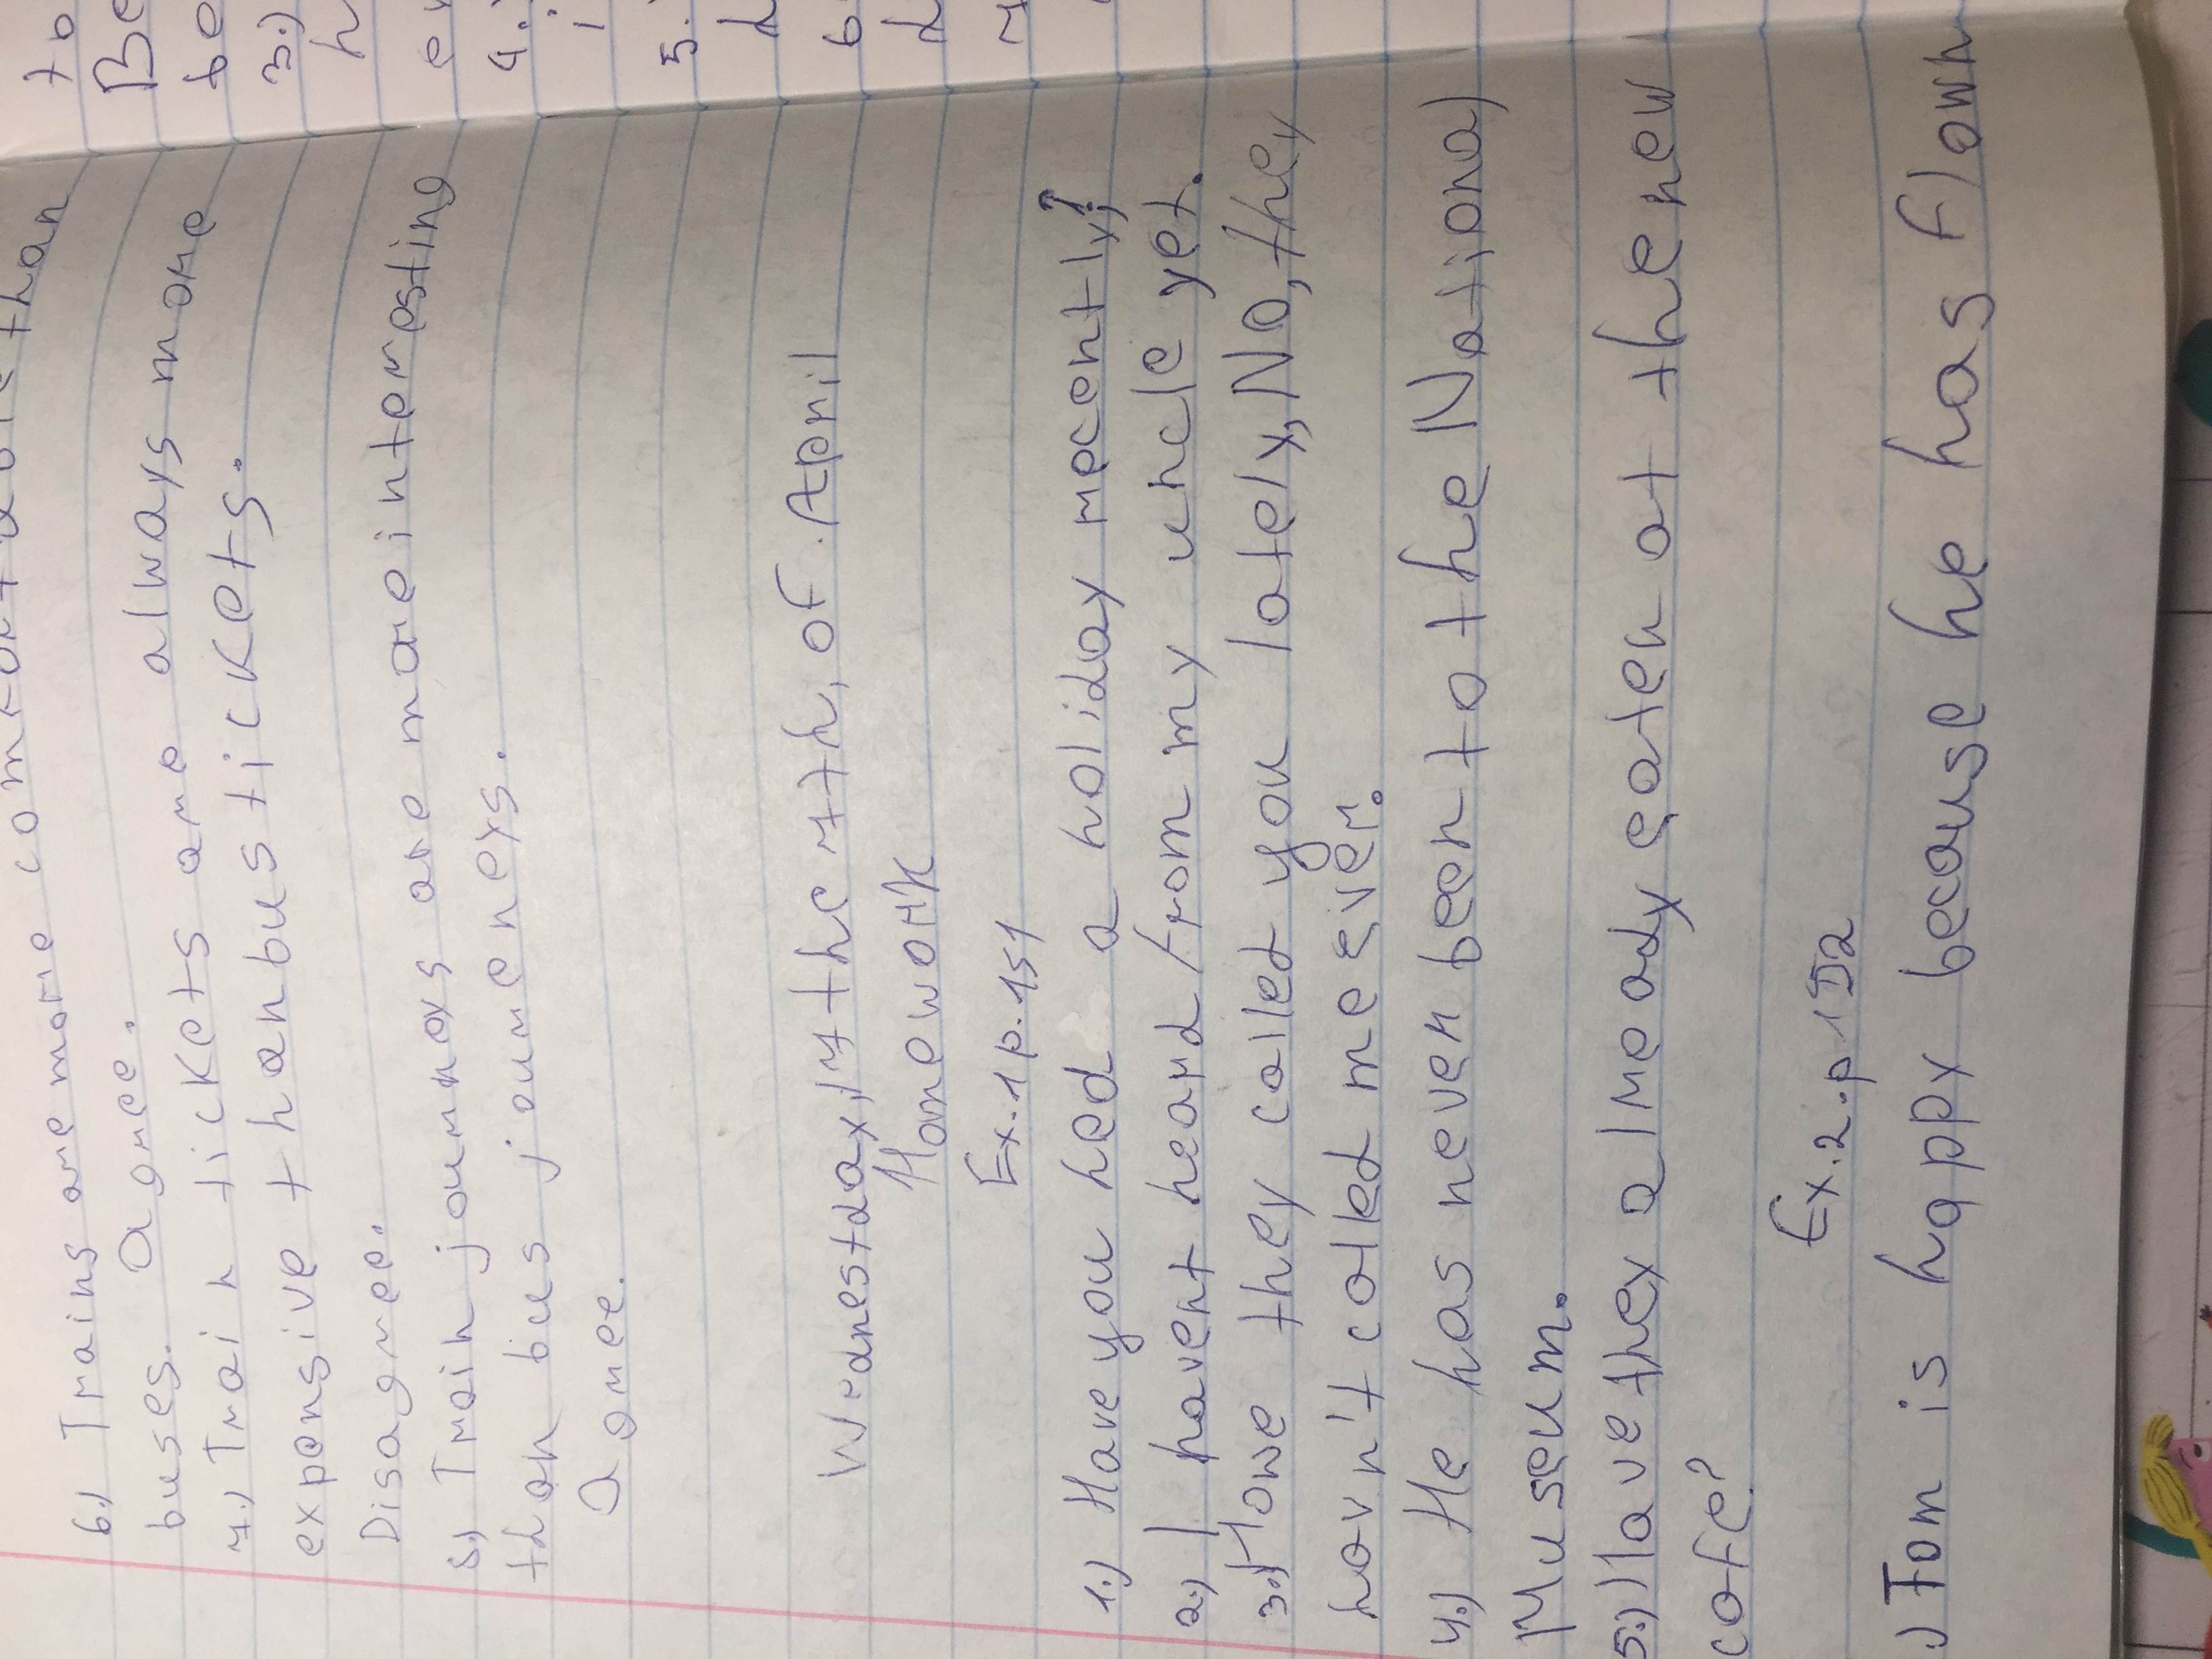 6.) Trains are more comfortable than
buses. Agree.
7.) Train tickets are always more
expensive than bus tickets.
Disagree.
8.) Train journeys are more interesting
than bus journeys.
Agree.
Wednestday, 17 the 7th, of April
Homework
Ex. 1 p. 151
1.) Have you hed a holiday recently?
2.) I havent heard from my uncle yet.
3.) Have they called you lately, No, they
hav n't caled me ever.
4.) He has never been to the National
Museum.
5.) Have they already eaten at the new
cafe?
Ex. 2. p 152
.) Tom is happy because he has flown
to
Be
be
3.)
h
e
4.)
i
5.
d
6.
d
7